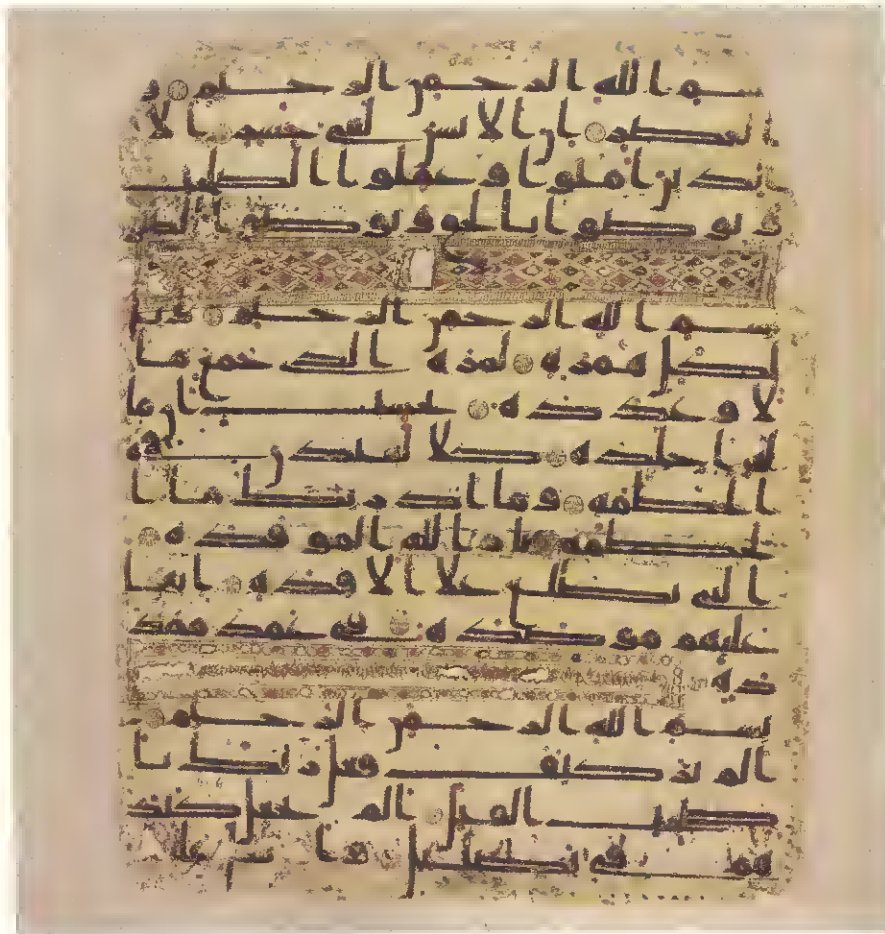 بسم الله الرحمن الرحيم و
العصر ان الانسن لفى خسر الا
الذين امنوا وعملوا الصلحت
وتوصوا بالحق وتوصوا بالصبر
بسم الله الرحمن الرحيم ويل
لكل همزة لمزة الذى جمع ما
لا وعدده يحسب ان ما
له اخلده كلا لينبذن فى
الحطمة وما ادريك ما ا
لحطمة نار الله الموقدة
التى تطلع على الافدة انها
عليهم موصدة فى عمد ممد
دة
بسم الله الرحمن الرحيم
الم تر كيف فعل ربك با
صحب الفيل الم يجعل كيد
هم فى تضليل وارسل